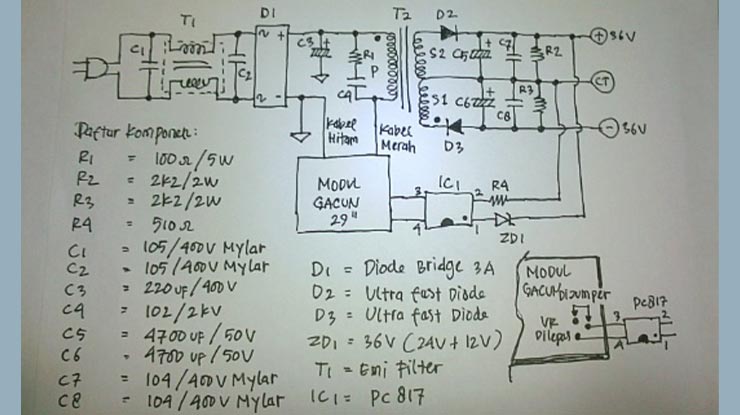 T1
D1
T2
D2
C1
C2
~ +
~ -
C3
+
R1
P
C4
S2
S1
C5
+
C7
R2
+ 36V
CT
C6
+
C8
R3
- 36V
D3
Kabel
Hitam
Kabel
Merah
MODUL
GACUN
29"
3
4
IC1
2
1
R4
ZD1
Daftar Komponen:
R1 = 100Ω/5W
R2 = 2K2/2W
R3 = 2K2/2W
R4 = 510Ω
C1 = 105/400V Mylar
C2 = 105/400V Mylar
C3 = 220uF/400V
C4 = 102/2KV
C5 = 4700uF/50V
C6 = 4700uF/50V
C7 = 104/400V Mylar
C8 = 104/400V Mylar
D1 = Diode Bridge 3A
D2 = Ultra fast Diode
D3 = Ultra fast Diode
ZD1 = 36V (24V + 12V)
T1 = Emi Filter
IC1 = PC817
MODUL
GACUN
Dijumper
VR
Dilepas
PC817
3
4
2
1